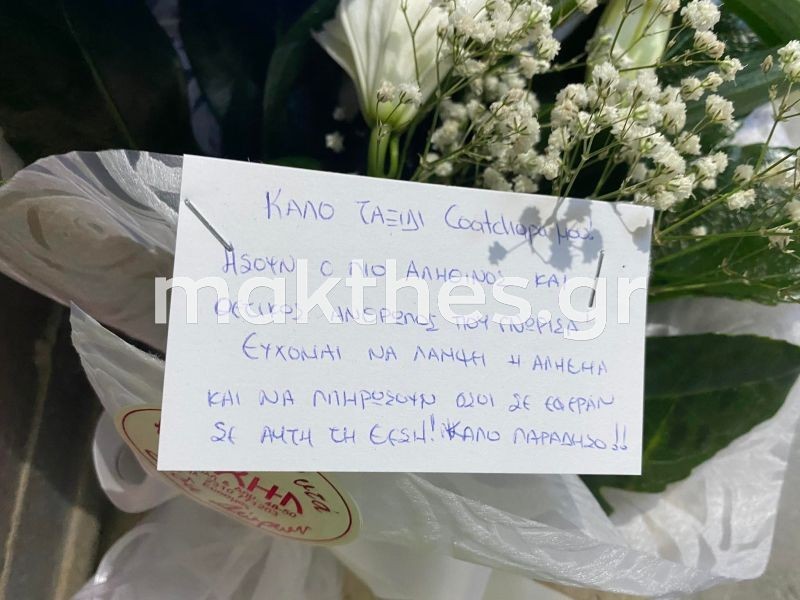 ΚΑΛΟ ΤΑΞΙΔΙ Coatdiapa μου!
ΗΣΟΥΝ Ο ΠΙΟ ΑΛΗΘΙΝΟΣ ΚΑΙ
ΘΕΤΙΚΟΣ ΑΝΘΡΩΠΟΣ ΠΟΥ ΓΝΩΡΙΣΑ
ΕΥΧΟΜΑΙ ΝΑ ΛΑΜΨΕΙ Η ΑΛΗΘΕΙΑ
ΚΑΙ ΝΑ ΠΛΗΡΩΣΟΥΝ ΟΣΟΙ ΣΕ ΕΦΕΡΑΝ
ΣΕ ΑΥΤΗ ΤΗ ΘΕΣΗ! ΚΑΛΟ ΠΑΡΑΔΗΣΟ!!
makthes.gr